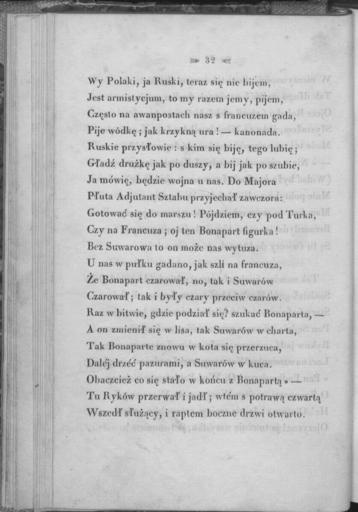 32
Wy Polaki, ja Ruski, teraz się nie bijem,
Jest armistycjum, to my razem jemy, pijem,
Często na awanpostach nasz s francuzem gada,
Pije wódkę; jak krzykną ura! — kanonada.
Ruskie przysłowie: s kim się biję, tego lubię;
Gładź drużkę jak po duszy, a bij jak po szubie,
Ja mówię, będzie wojna u nas. Do Majora
Płuta Adjutant Sztabu przyjechał zawczora:
Gotować się do marszu! Pójdziem, czy pod Turka,
Czy na Francuza; oj ten Bonapart figurka!
Bez Suwarowa to on może nas wytuza.
U nas w pułku gadano, jak szli na francuza,
Że Bonapart czarował, no, tak i Suwarów
Czarował; tak i były czary przeciw czarów.
Raz w bitwie, gdzie podział się? szukać Bonaparta, —
A on zmienił się w lisa, tak Suwarów w charta,
Tak Bonaparte znowu w kota się przerzuca,
Daléj drzéć pazurami, a Suwarów w kuca.
Obaczcież co się stało w końcu z Bonapartą » —
Tu Ryków przerwał i jadł; wtém s potrawą czwartą
Wszedł służący, i raptem boczne drzwi otwarto.